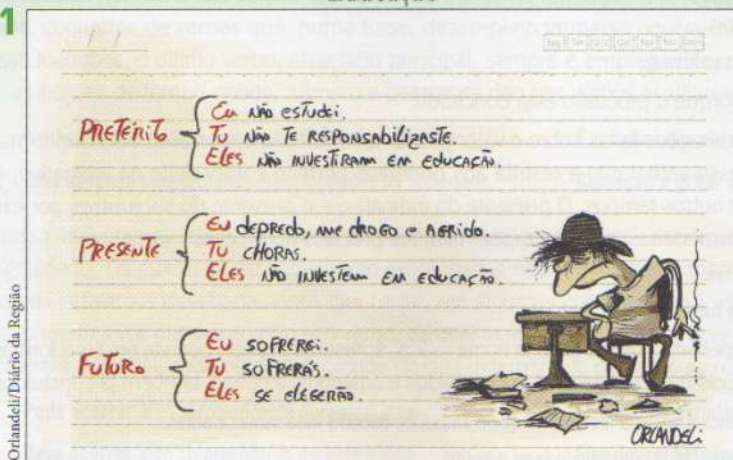 1
PRETÉRITO
Eu NÃO ESTUDEI.
TU NÃO TE RESPONSABILIZASTE.
ELES NÃO INVESTIRAM EM EDUCAÇÃO.
PRESENTE
EU depREdO, ME dROGO E AGRIDO.
TU CHORAS.
ELES NÃO INVESTEM EM EDUCAÇÃO.
FUTURO
EU SOFREREI.
TU SOFRERÁS.
ELES SE ELEGERÃO.
ORLANDELI
Orlandeli/Diário da Região